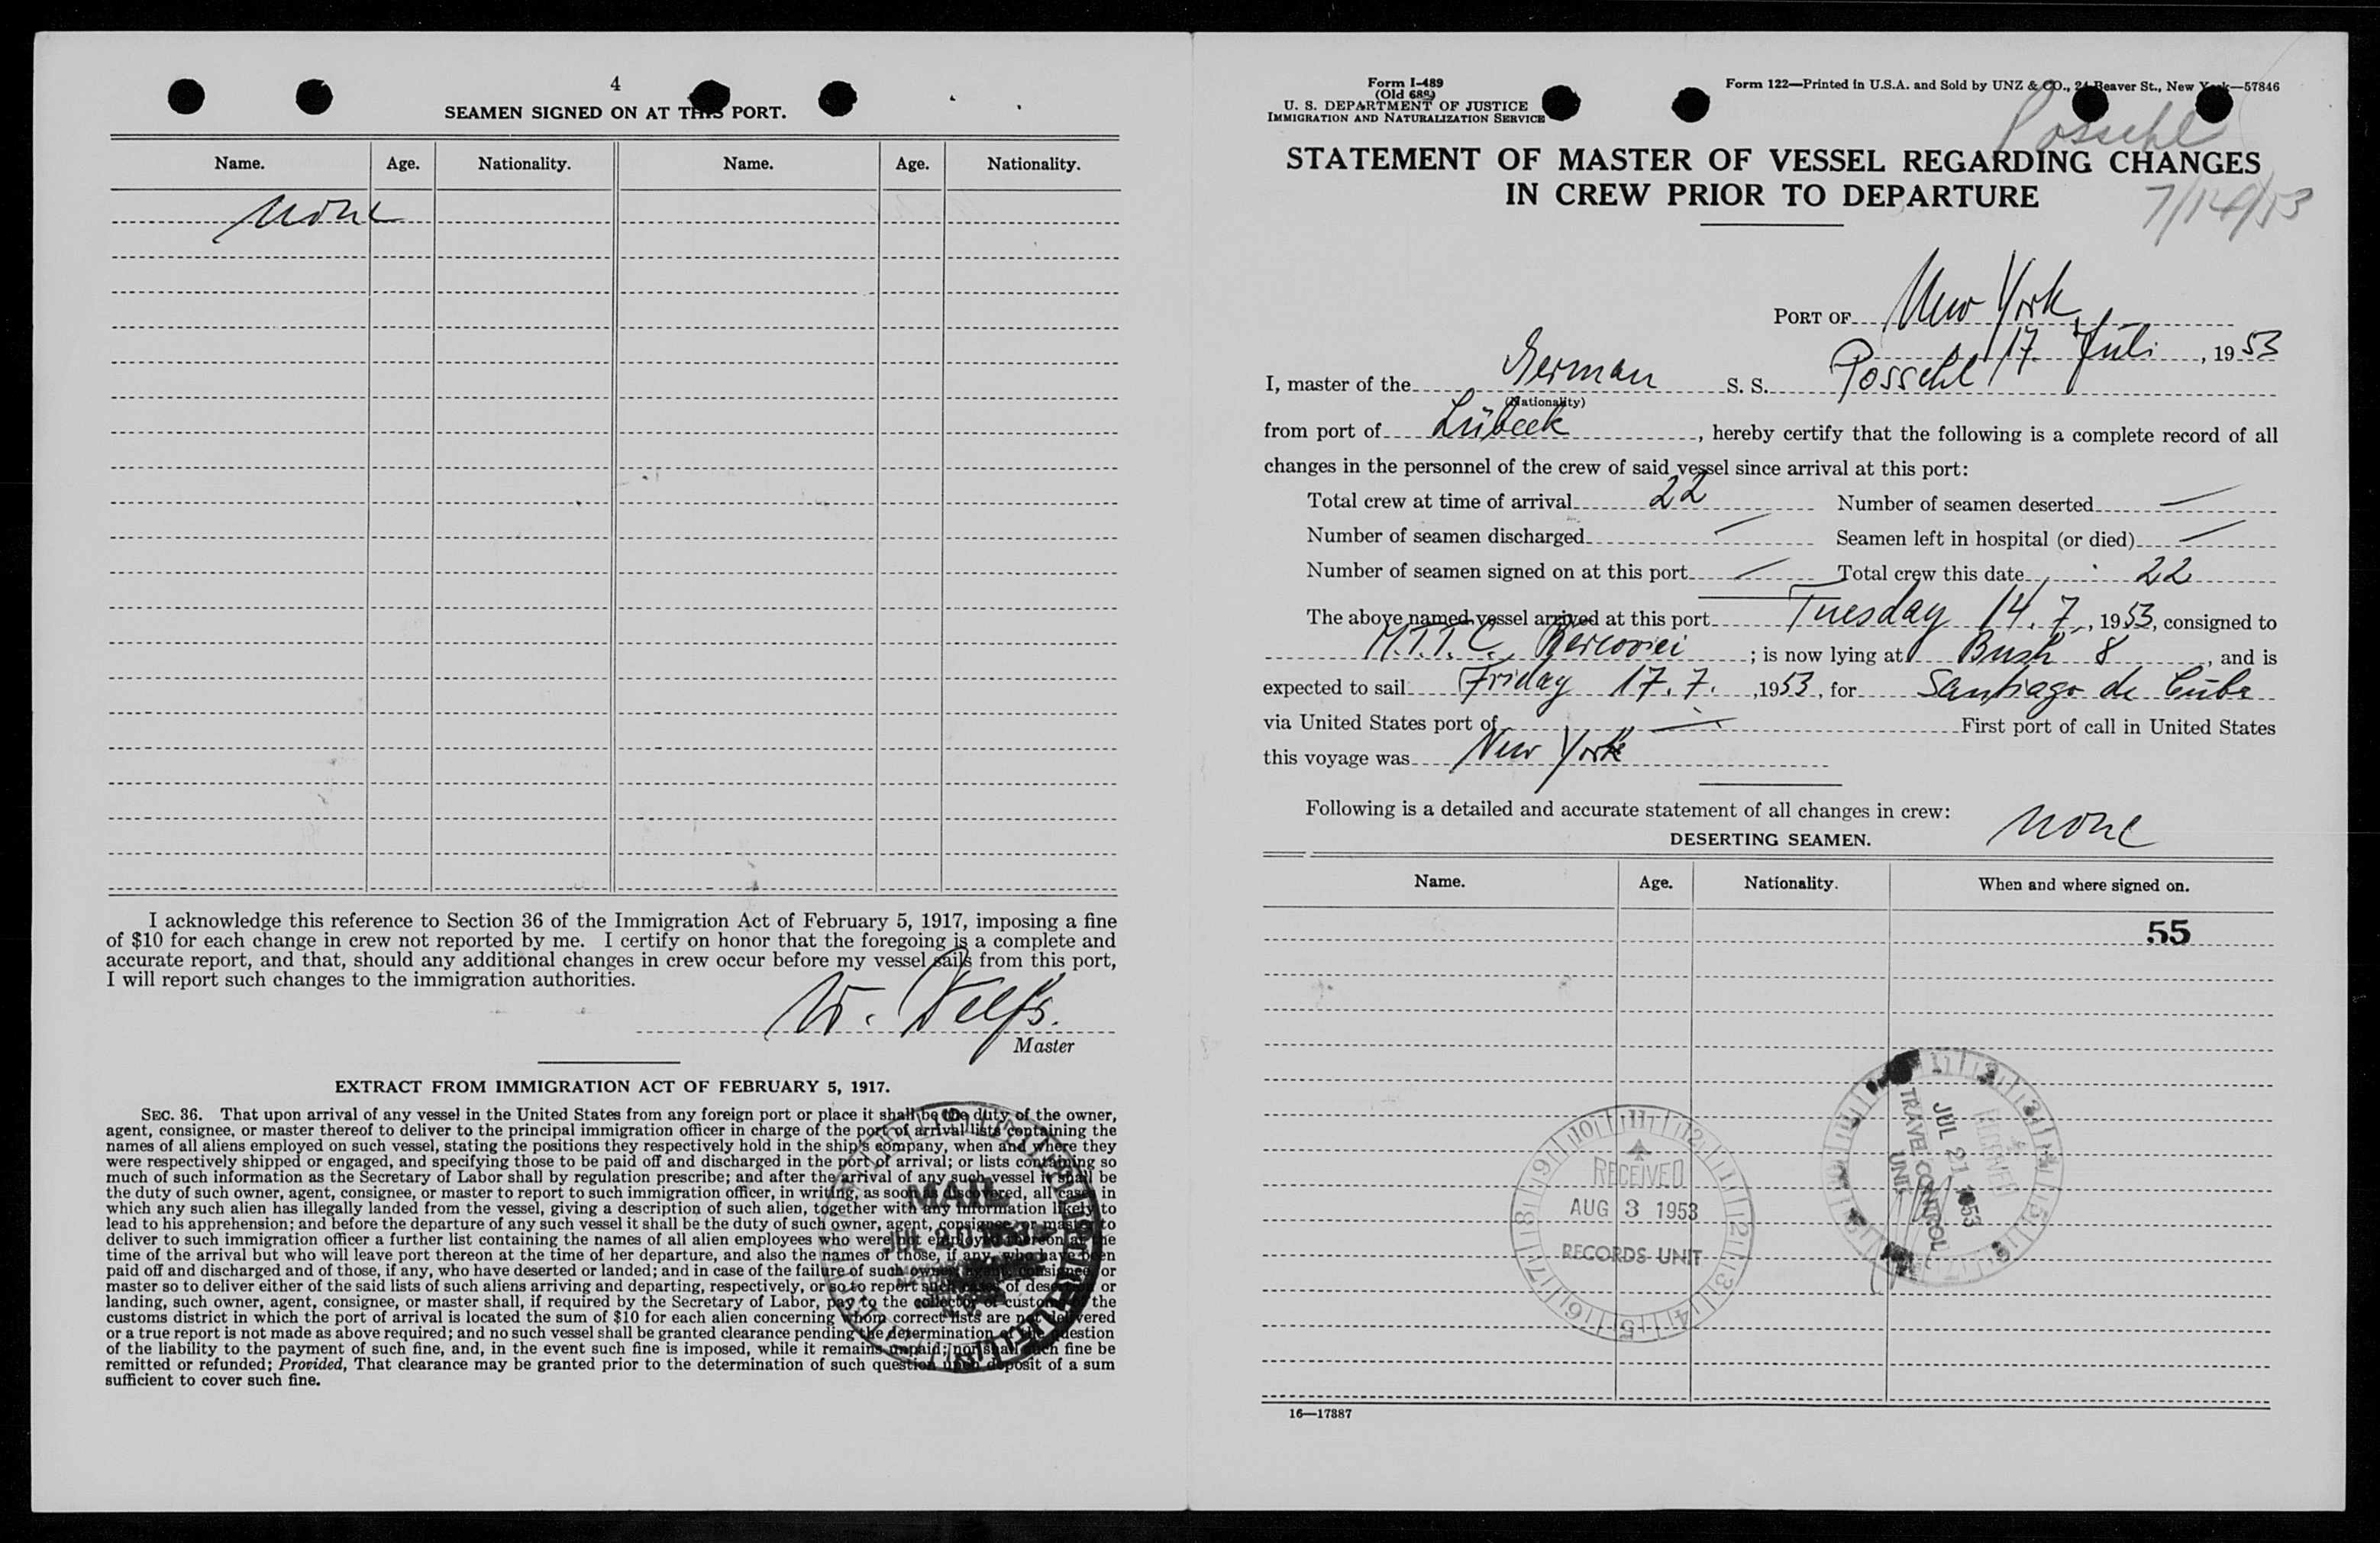 4
SEAMEN SIGNED ON AT THIS PORT.
Name. Age. Nationality. Name. Age. Nationality.
None
I acknowledge this reference to Section 36 of the Immigration Act of February 5, 1917, imposing a fine
of $10 for each change in crew not reported by me. I certify on honor that the foregoing is a complete and
accurate report, and that, should any additional changes in crew occur before my vessel sails from this port,
I will report such changes to the immigration authorities.
W.
Master
EXTRACT FROM IMMIGRATION ACT OF FEBRUARY 5, 1917.
SEC. 36. That upon arrival of any vessel in the United States from any foreign port or place it shall be the duty of the owner,
agent, consignee, or master thereof to deliver to the principal immigration officer in charge of the port of arrival lists containing the
names of all aliens employed on such vessel, stating the positions they respectively hold in the ship's company, when and where they
were respectively shipped or engaged, and specifying those to be paid off and discharged in the port of arrival; or lists containing so
much of such information as the Secretary of Labor shall by regulation prescribe; and after the arrival of any such vessel it shall be
the duty of such owner, agent, consignee, or master to report to such immigration officer, in writing, as soon as discovered, all cases in
which any such alien has illegally landed from the vessel, giving a description of such alien, together with any information likely to
lead to his apprehension; and before the departure of any such vessel it shall be the duty of such owner, agent, consignee, or master to
deliver to such immigration officer a further list containing the names of all alien employees who were not employed thereon at the
time of the arrival but who will leave port thereon at the time of her departure, and also the names of those, if any, who have been
paid off and discharged and of those, if any, who have deserted or landed; and in case of the failure of such owner, agent, consignee, or
master so to deliver either of the said lists of such aliens arriving and departing, respectively, or so to report such cases of desertion or
landing, such owner, agent, consignee, or master shall, if required by the Secretary of Labor, pay to the collector of customs of the
customs district in which the port of arrival is located the sum of $10 for each alien concerning whom correct lists are not delivered
or a true report is not made as above required; and no such vessel shall be granted clearance pending the determination of the question
of the liability to the payment of such fine, and, in the event such fine is imposed, while it remains unpaid; nor shall such fine be
remitted or refunded; Provided, That clearance may be granted prior to the determination of such question upon deposit of a sum
sufficient to cover such fine.
MAIL
JUL 20 1953
Form I-489
(Old 689)
U. S. DEPARTMENT OF JUSTICE
IMMIGRATION AND NATURALIZATION SERVICE
Form 122—Printed in U.S.A. and Sold by UNZ & CO., 24 Beaver St., New York—57846
Possehl
STATEMENT OF MASTER OF VESSEL REGARDING CHANGES
IN CREW PRIOR TO DEPARTURE
7/14/53
PORT OF New York,
17. Juli, 1953
I, master of the German S. S. Possehl
(Nationality)
from port of Lübeck, hereby certify that the following is a complete record of all
changes in the personnel of the crew of said vessel since arrival at this port:
Total crew at time of arrival 22 Number of seamen deserted —
Number of seamen discharged — Seamen left in hospital (or died) —
Number of seamen signed on at this port — Total crew this date 22
The above named vessel arrived at this port Tuesday 14. 7., 1953, consigned to
M.T.T.C., Bercovici; is now lying at Bush 8, and is
expected to sail Friday 17. 7., 1953, for Santiago de Cuba
via United States port of — First port of call in United States
this voyage was New York
Following is a detailed and accurate statement of all changes in crew: None
DESERTING SEAMEN.
Name. Age. Nationality. When and where signed on.
55
RECEIVED
AUG 3 1953
RECORDS UNIT
RECEIVED
JUL 21 1953
TRAVEL CONTROL
UNIT
16—17887